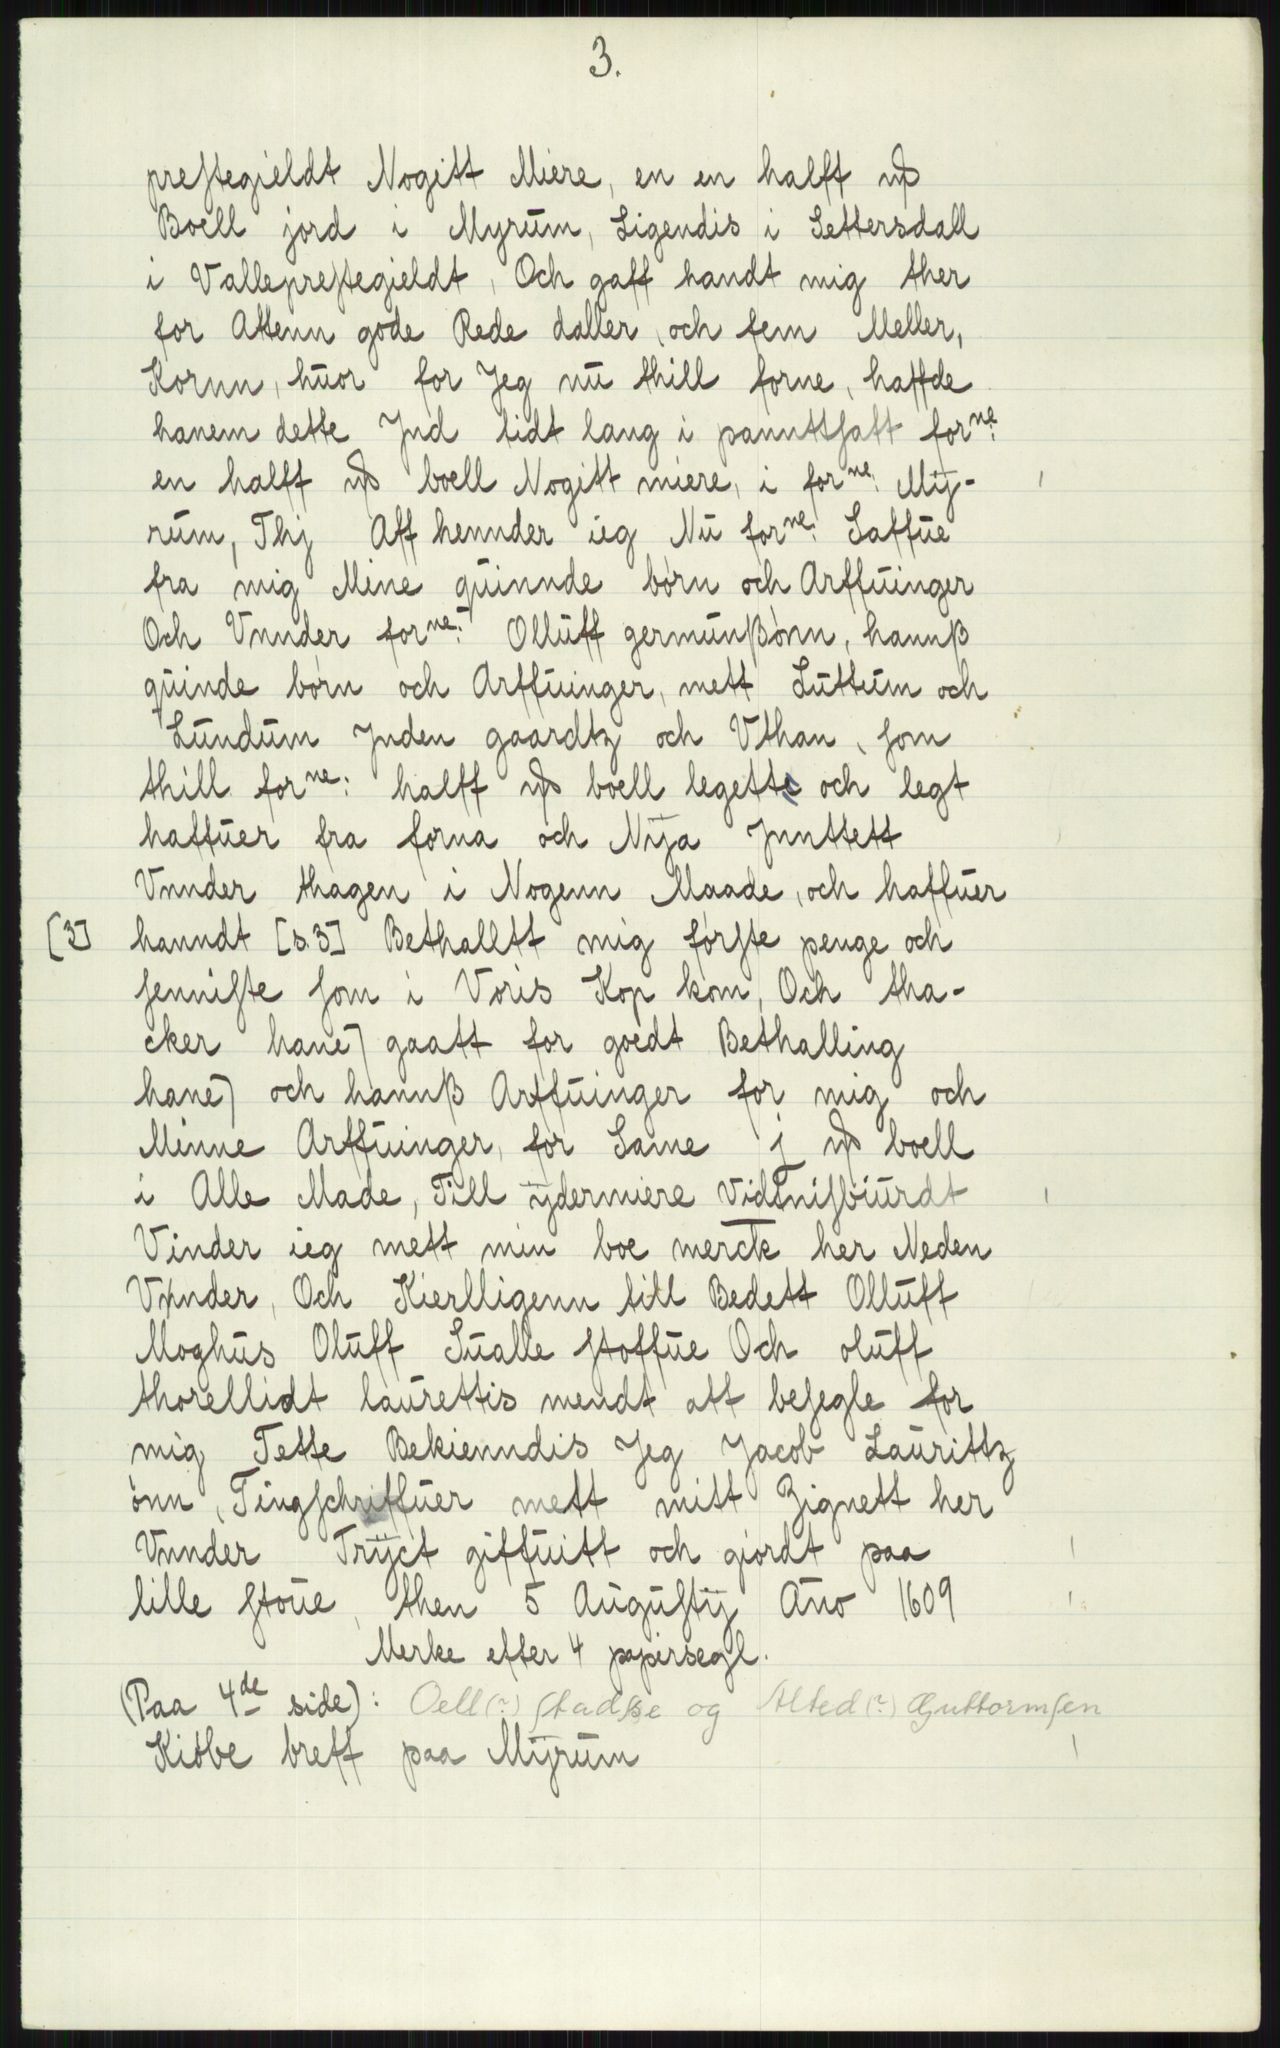 3.
preſtegieldt Nogitt Miere, en en halff
Boell jord i Myrum, Ligendis i Settersdall
i Vallepreſtegieldt, Och gaff handt mig ther
for Attenn gode Rede daller, och fem Meller,
Kornn, huor for Jeg nu thill forne, haffde
hanem dette Jnd tidt lang i pannttſatt forne:
en halff boell Nogitt miere, i forne: Mÿ-
rum, Thj Aff hennder ieg Nu forne: Saffue
fra mig Mine quinnde børn och Arffuinger
Och Vnnder forne: Olluff germunßønn, hannß
quinde børn och Arffuinger, mett Luttum och
Lundum Jnden gaardtz och Vthan, ſom
thill forne: halff boell legette och legt
haffuer fra forna och Nÿa Jnnttett
Vnnder thagen i Nogenn Maade, och haffuer
[3] hanndt [s.3] Bethalltt mig förſte penge och
ſenniſte ſom i Voris Kop kom, Och tha-
cker hane) gaatt for goedt Bethalling
hane) och hannß Arffuinger for mig och
Minne Arffuinger, for Same j boell
i Alle Made, Till ÿdermiere Vidtniſbiurdt
Vinder ieg mett min boe mercke her Neden
Vnnder, Och Kierlligenn till Bedett Olluff
Moghus Oluff Sualle ſtoffue Och oluff
thorellidt laurettis mendt att beſegle for
mig Tette Bekienndis Jeg Jacob Laurittz
ønn, Tingſchriffuer mett mitt Zignett her
Vnnder Trÿct giffuitt och giordt paa
lille ſtoue, then 5 Auguſtÿ Año 1609
Merke efter 4 papirsegl.
(Paa 4de side): Oell(?) ſtadſze og Alted(?) Guttormſen
Kiøbe breff paa Mÿrum